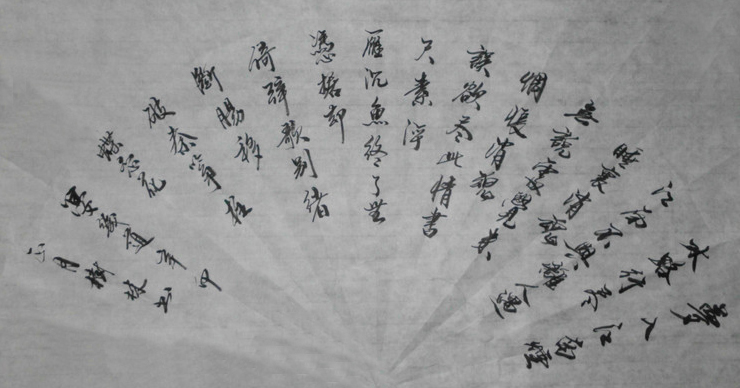 夢入江南煙
水路行盡
江南不與離人遇
睡裏消魂
無說處覺來
惆悵消魂
誤欲盡此情書
尺素浮
雁沉魚終了無
憑據却
倚歌別緒
斷腸移
破秦箏柱
蝶戀花
晏幾道辛卯
正月柳書